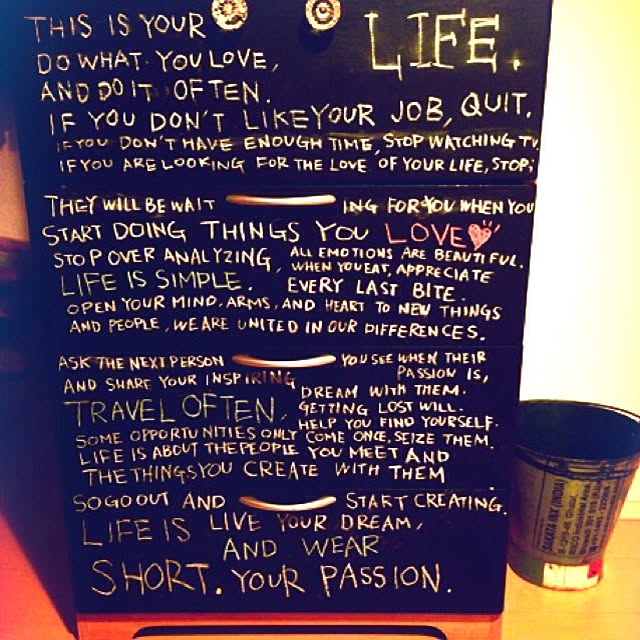 THIS IS YOUR LIFE.
DO WHAT YOU LOVE,
AND DO IT OFTEN.
IF YOU DON'T LIKE YOUR JOB, QUIT.
IF YOU DON'T HAVE ENOUGH TIME, STOP WATCHING TV.
IF YOU ARE LOOKING FOR THE LOVE OF YOUR LIFE, STOP;
THEY WILL BE WAITING FOR YOU WHEN YOU
START DOING THINGS YOU LOVE
STOP OVER ANALYZING,
LIFE IS SIMPLE.
ALL EMOTIONS ARE BEAUTIFUL.
WHEN YOU EAT, APPRECIATE
EVERY LAST BITE.
OPEN YOUR MIND, ARMS, AND HEART TO NEW THINGS
AND PEOPLE, WE ARE UNITED IN OUR DIFFERENCES.
ASK THE NEXT PERSON YOU SEE WHEN THEIR
PASSION IS,
AND SHARE YOUR INSPIRING
DREAM WITH THEM.
TRAVEL OFTEN,
GETTING LOST WILL
HELP YOU FIND YOURSELF.
SOME OPPORTUNITIES ONLY COME ONCE, SEIZE THEM.
LIFE IS ABOUT THE PEOPLE YOU MEET AND
THE THINGS YOU CREATE WITH THEM
SO GO OUT AND START CREATING.
LIFE IS LIVE YOUR DREAM,
AND WEAR
SHORT. YOUR PASSION.
SAKATA INX (INDIA)